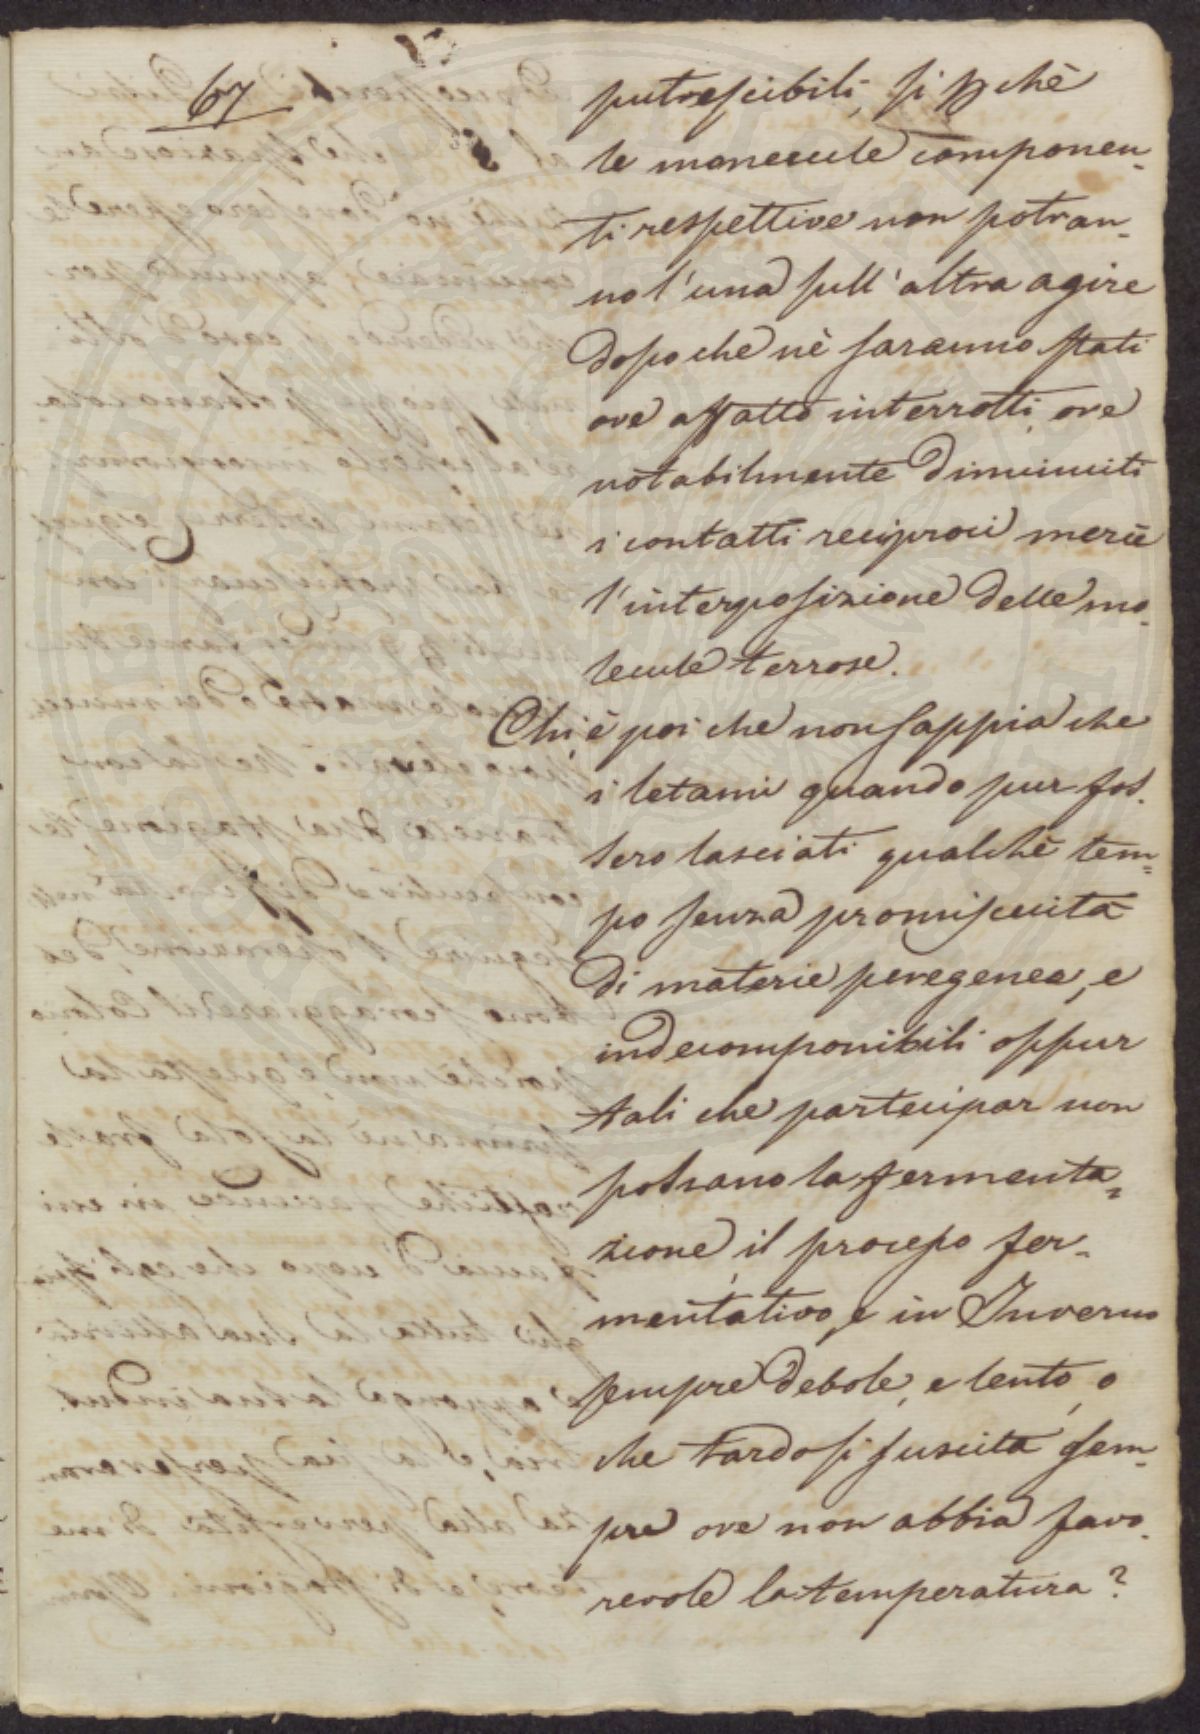 67
putrescibili, si perchè
le monecule componen-
ti respettive non potran-
no l'una sull'altra agire
dopo che nè saranno stati
ove affatto interrotti, ove
notabilmente diminuiti
i contatti reciproci mercè
l'interposizione delle mo-
lecule terrose.
Chi è poi che non sappia che
i letami quando pur fos-
sero lasciati qualchè tem-
po senza promiscuità
di materie peregenee, e
indecomponibili oppur
tali che partecipar non
possano la fermenta-
zione il processo fer-
mentativo, e in Inverno
sempre debole, e lento, o
che tardo si suscita sem-
pre ove non abbia favo-
revole la temperatura?